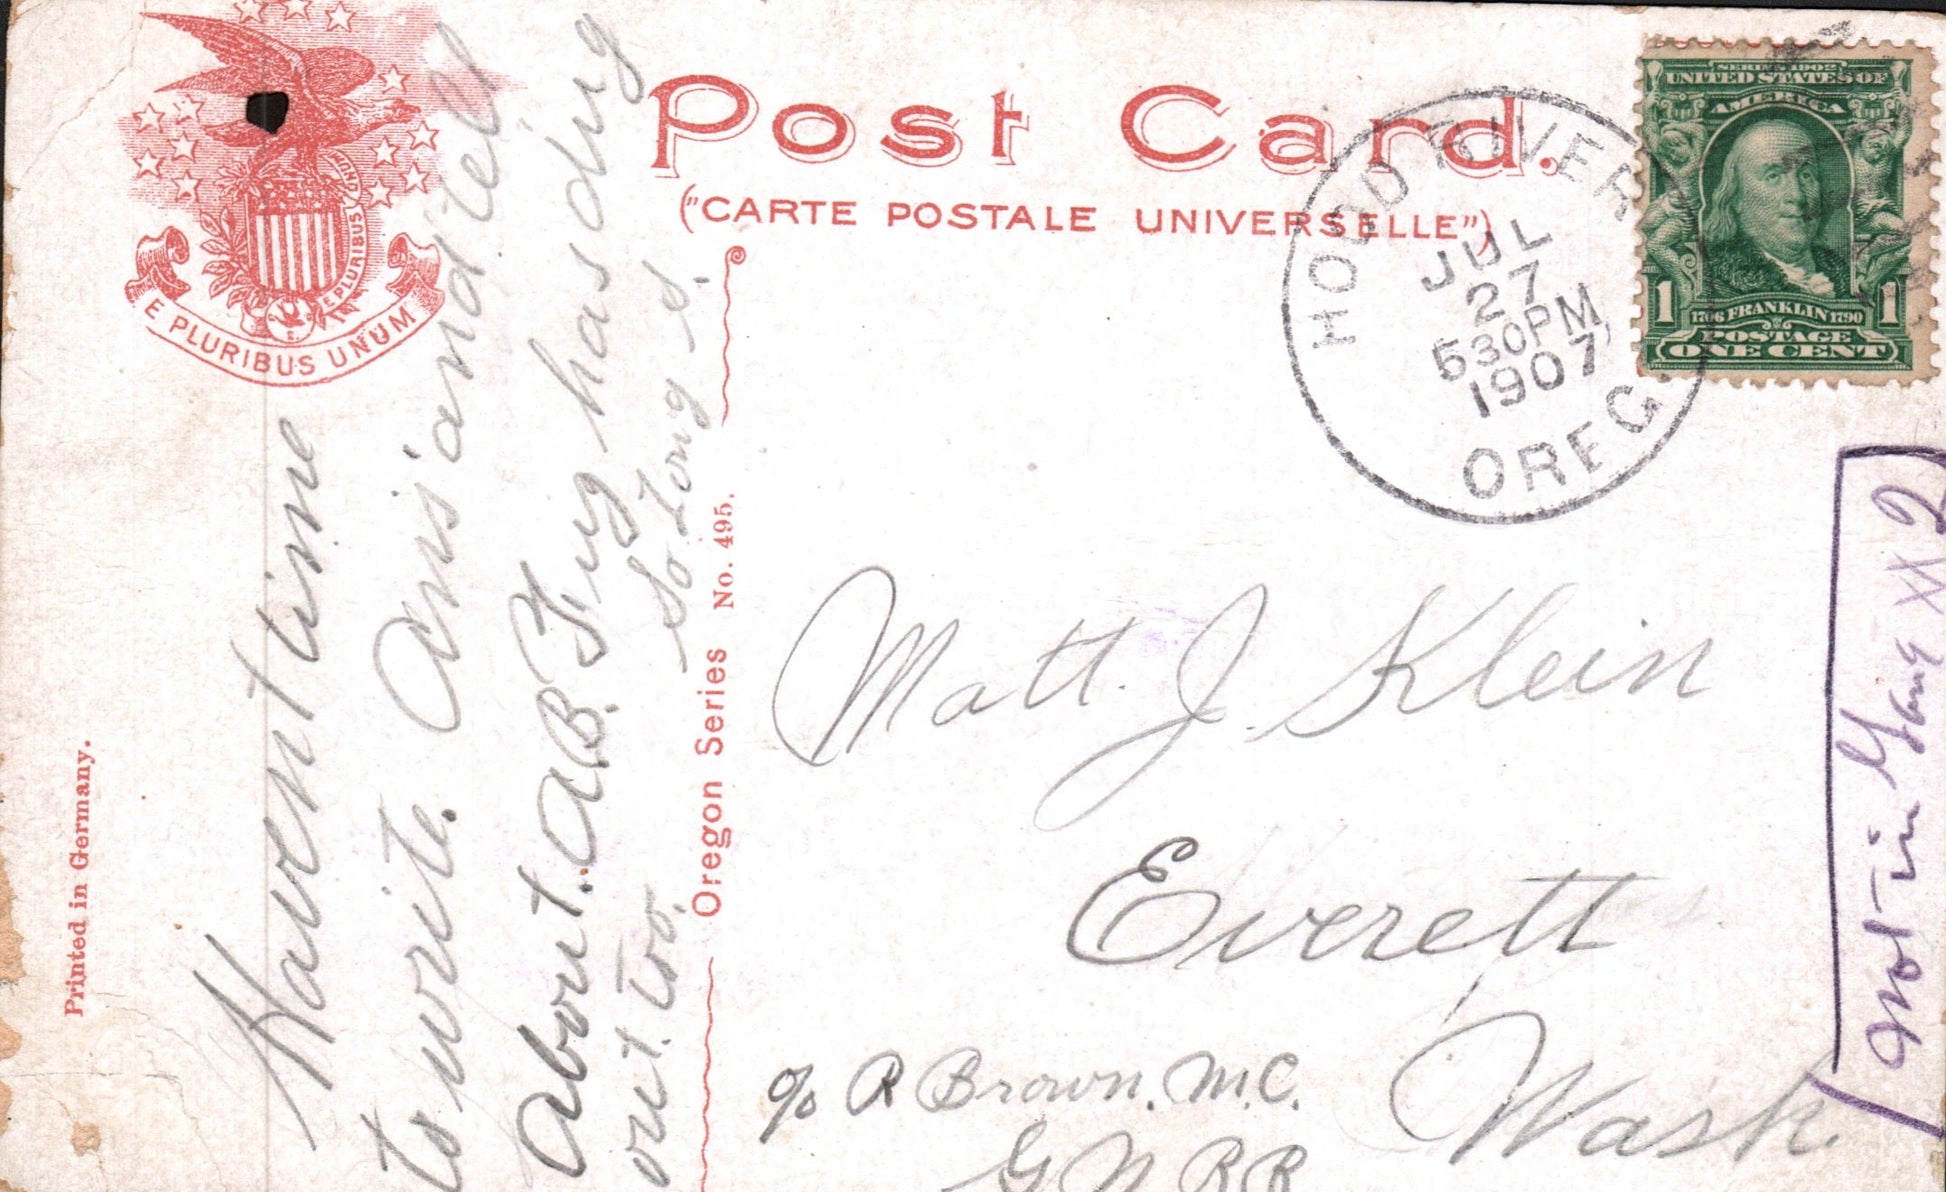 Post Card.
("CARTE POSTALE UNIVERSELLE")
E PLURIBUS UNUM
E PLURIBUS UNUM
HOOD RIVER
JUL
27
530PM
1907
OREG.
SERIES 1902
UNITED STATES OF
AMERICA
1706 FRANKLIN 1790
1 1
POSTAGE
ONE CENT
Printed in Germany.
Haven't time
to write. Ans' and tell
about. A.B. Fug has ding
out too. So Long s.
Oregon Series No. 495.
Matt. J. Klein
Everett
Wash.
c/o R Brown. M.C.
G N RR
not in Gang xx 2